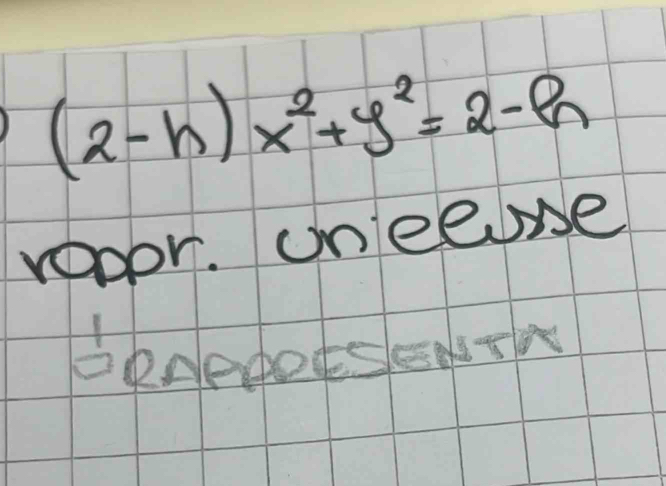 ) (2-h) x²+y² = 2-h
rappr. un'ellisse
RAPPRESENTA